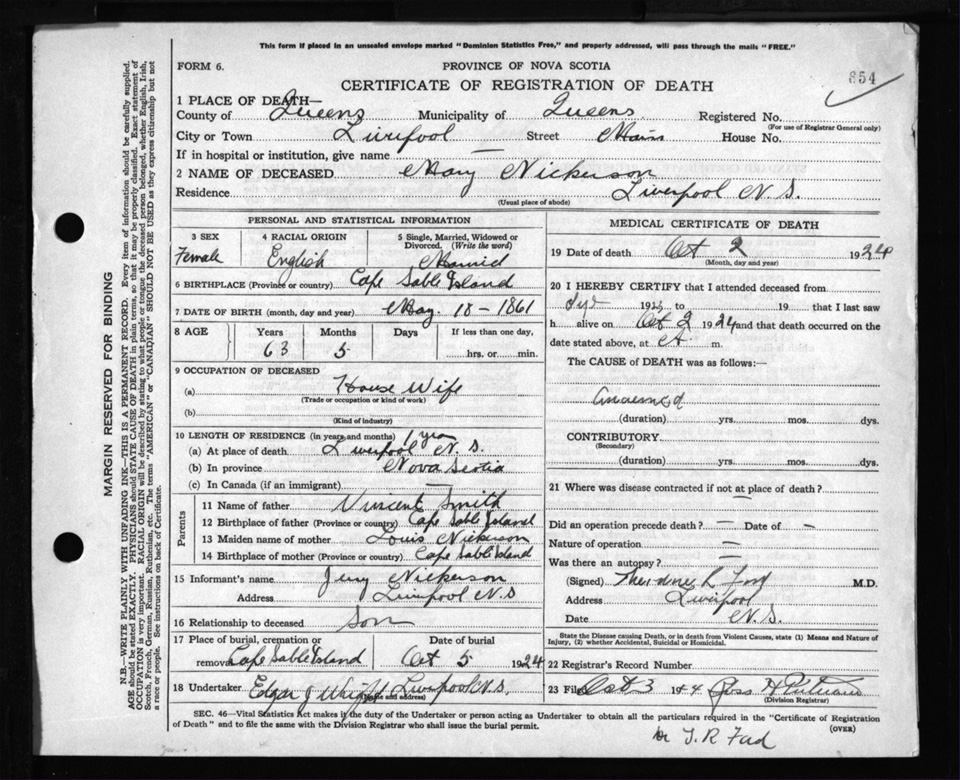 This form if placed in an unsealed envelope marked "Dominion Statistics Free," and properly addressed, will pass through the mails "FREE."
FORM 6.
PROVINCE OF NOVA SCOTIA
654
CERTIFICATE OF REGISTRATION OF DEATH
1 PLACE OF DEATH—
County of Queens Municipality of Queens Registered No.
(For use of Registrar General only)
City or Town Liverpool Street Main House No.
If in hospital or institution, give name —
2 NAME OF DECEASED Mary Nickerson
Residence Liverpool N.S.
(Usual place of abode)
PERSONAL AND STATISTICAL INFORMATION
3 SEX 4 RACIAL ORIGIN 5 Single, Married, Widowed or Divorced. (Write the word)
Female English Married
6 BIRTHPLACE (Province or country) Cape Sable Island
7 DATE OF BIRTH (month, day and year) May. 18 - 1861
8 AGE Years Months Days If less than one day,
63 5 hrs. or min.
9 OCCUPATION OF DECEASED
(a) House Wife
(Trade or occupation or kind of work)
(b)
(Kind of industry)
10 LENGTH OF RESIDENCE (in years and months) 1 year
(a) At place of death Liverpool N.S.
(b) In province Nova Scotia
(c) In Canada (if an immigrant) —
Parents
11 Name of father Vincent Smith
12 Birthplace of father (Province or country) Cape Sable Island
13 Maiden name of mother Louis Nickerson
14 Birthplace of mother (Province or country) Cape Sable Island
15 Informant's name Jerry Nickerson
Address Liverpool N.S
16 Relationship to deceased Son
17 Place of burial, cremation or removal Cape Sable Island
Date of burial
Oct 5 1924
18 Undertaker Edgar J Wright Liverpool N.S.
(Name and address)
MEDICAL CERTIFICATE OF DEATH
19 Date of death Oct 2 1924
(Month, day and year)
20 I HEREBY CERTIFY that I attended deceased from
192 to 19 that I last saw
h alive on Oct 2 1924 and that death occurred on the
date stated above, at m.
The CAUSE of DEATH was as follows:—
(duration) yrs. mos. dys.
CONTRIBUTORY
(Secondary)
(duration) yrs. mos. dys.
21 Where was disease contracted if not at place of death?
—
Did an operation precede death? — Date of —
Nature of operation —
Was there an autopsy? —
(Signed) Theodore R Ford M.D.
Address Liverpool
Date N.S.
State the Disease causing Death, or in death from Violent Causes, state (1) Means and Nature of
Injury, (2) whether Accidental, Suicidal or Homicidal.
22 Registrar's Record Number
23 Filed Oct 3 1924 Ross
(Division Registrar)
SEC. 46—Vital Statistics Act makes it the duty of the Undertaker or person acting as Undertaker to obtain all the particulars required in the "Certificate of Registration
of Death" and to file the same with the Division Registrar who shall issue the burial permit.
(OVER)
Dr T. R Ford
MARGIN RESERVED FOR BINDING
N.B.—WRITE PLAINLY WITH UNFADING INK—THIS IS A PERMANENT RECORD. Every item of information should be carefully supplied.
AGE should be stated EXACTLY. PHYSICIANS should STATE CAUSE OF DEATH in plain terms, so that it may be properly classified. Exact statement of
OCCUPATION is very important. RACIAL ORIGIN will be described by stating to what people or tongue the deceased person belonged, whether English, Irish,
Scotch, French, German, Russian, Ruthenian, etc. The terms "AMERICAN" or "CANADIAN" SHOULD NOT BE USED as they express citizenship but not
a race or people. See instructions on back of Certificate.